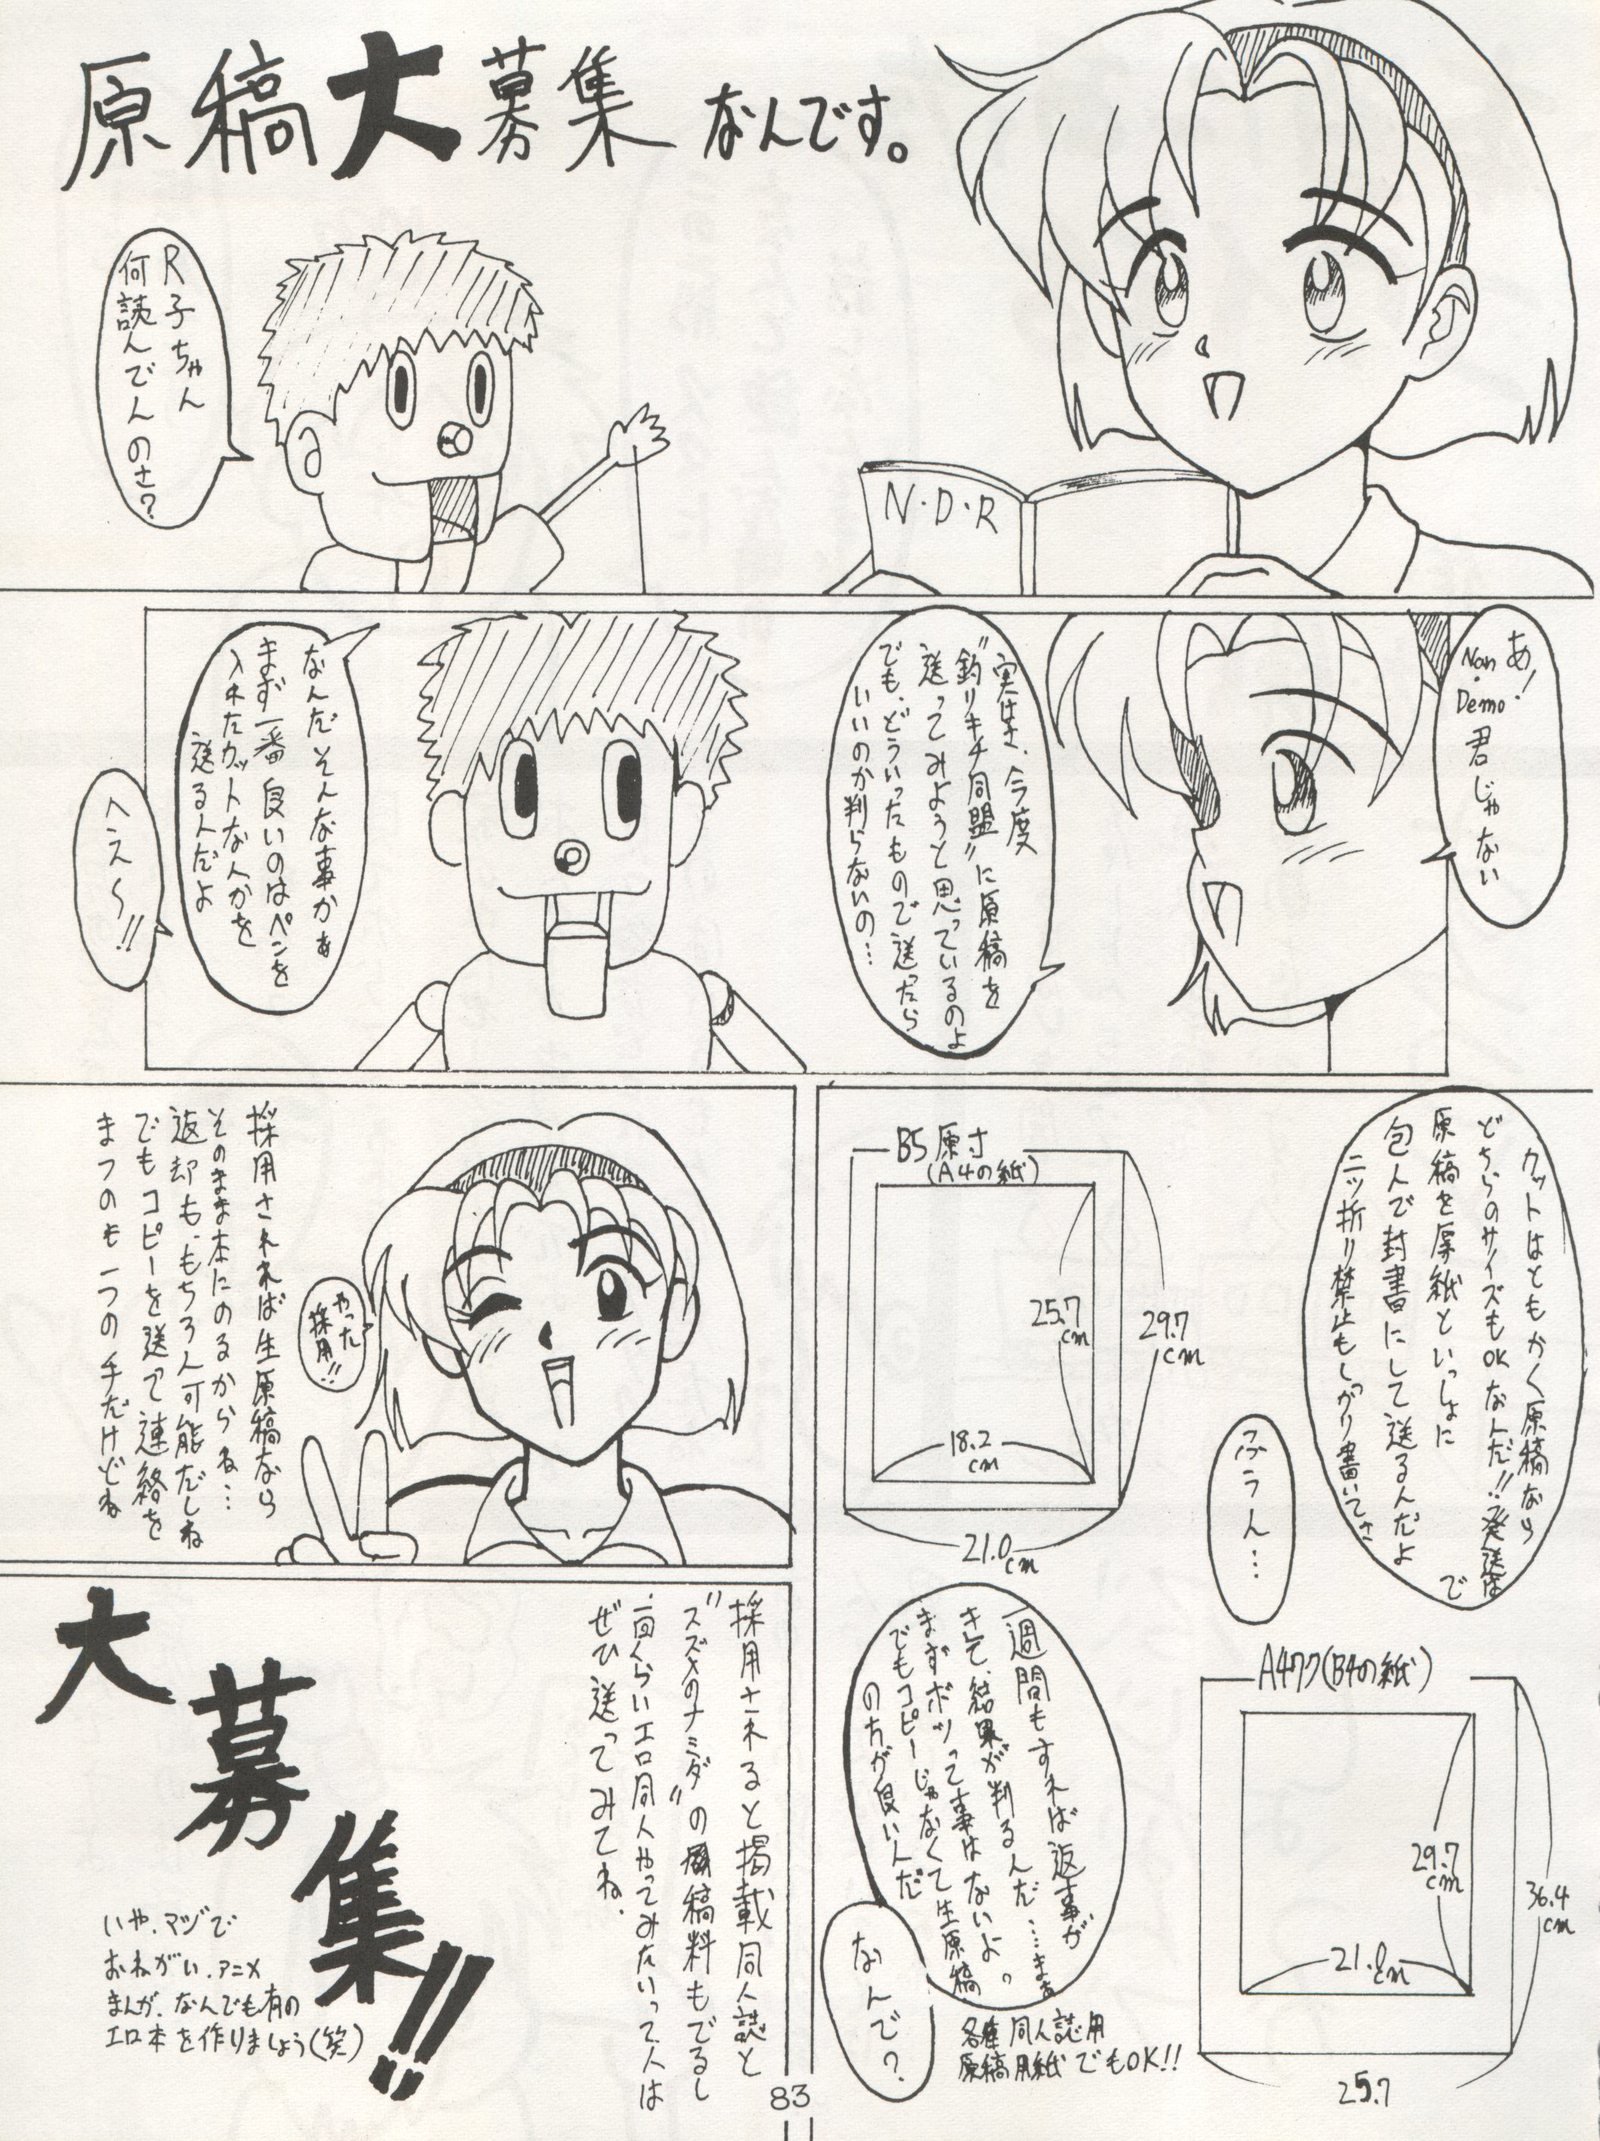 原稿大募集なんです。
R子ちゃん
何読んでんのさ?
N・D・R
あ!
Non・Demo
君じゃない
実はさ、今度
"釣りキチ同盟"に原稿を
送ってみようと思っているのよ
でも、どういったもので送ったら
いいのか判らないの…
なんだそんな事かぁ
まず一番良いのはペンを
入れたカットなんかを
送る人だよ
ヘェ~!!
カットはともかく原稿なら
どちらのサイズもOKなんだ!!発送は
原稿を厚紙といっしょに
包んで封書にして送るんだよ
で
二ッ折り禁止もしっかり書いてさ
ふうん…
B5原寸
(A4の紙)
25.7
cm
29.7
cm
18.2
cm
21.0
cm
採用されれば生原稿なら
そのまま本にのるからね…
返却も、もちろん可能だしね
でもコピーを送って連絡を
まつのも一つの手だけどね
やった
採用!!
A4ワク(B4の紙)
29.7
cm
36.4
cm
21.0
cm
25.7
一週間もすれば返事が
きて、結果が判るんだ……まぁ
まずボツって事はないよ。
でもコピーじゃなくて生原稿
の方が良いんだ
なんで?
各種同人誌用
原稿用紙でもOK!!
採用されると掲載同人誌と
"スズメのナミダ"の原稿料もでるし
一回くらいエロ同人やってみたいって人は
ぜひ送ってみてね。
大募集!!
いや、マジで
おねがい、アニメ
まんが、なんでも有の
エロ本を作りましょう(笑)
83